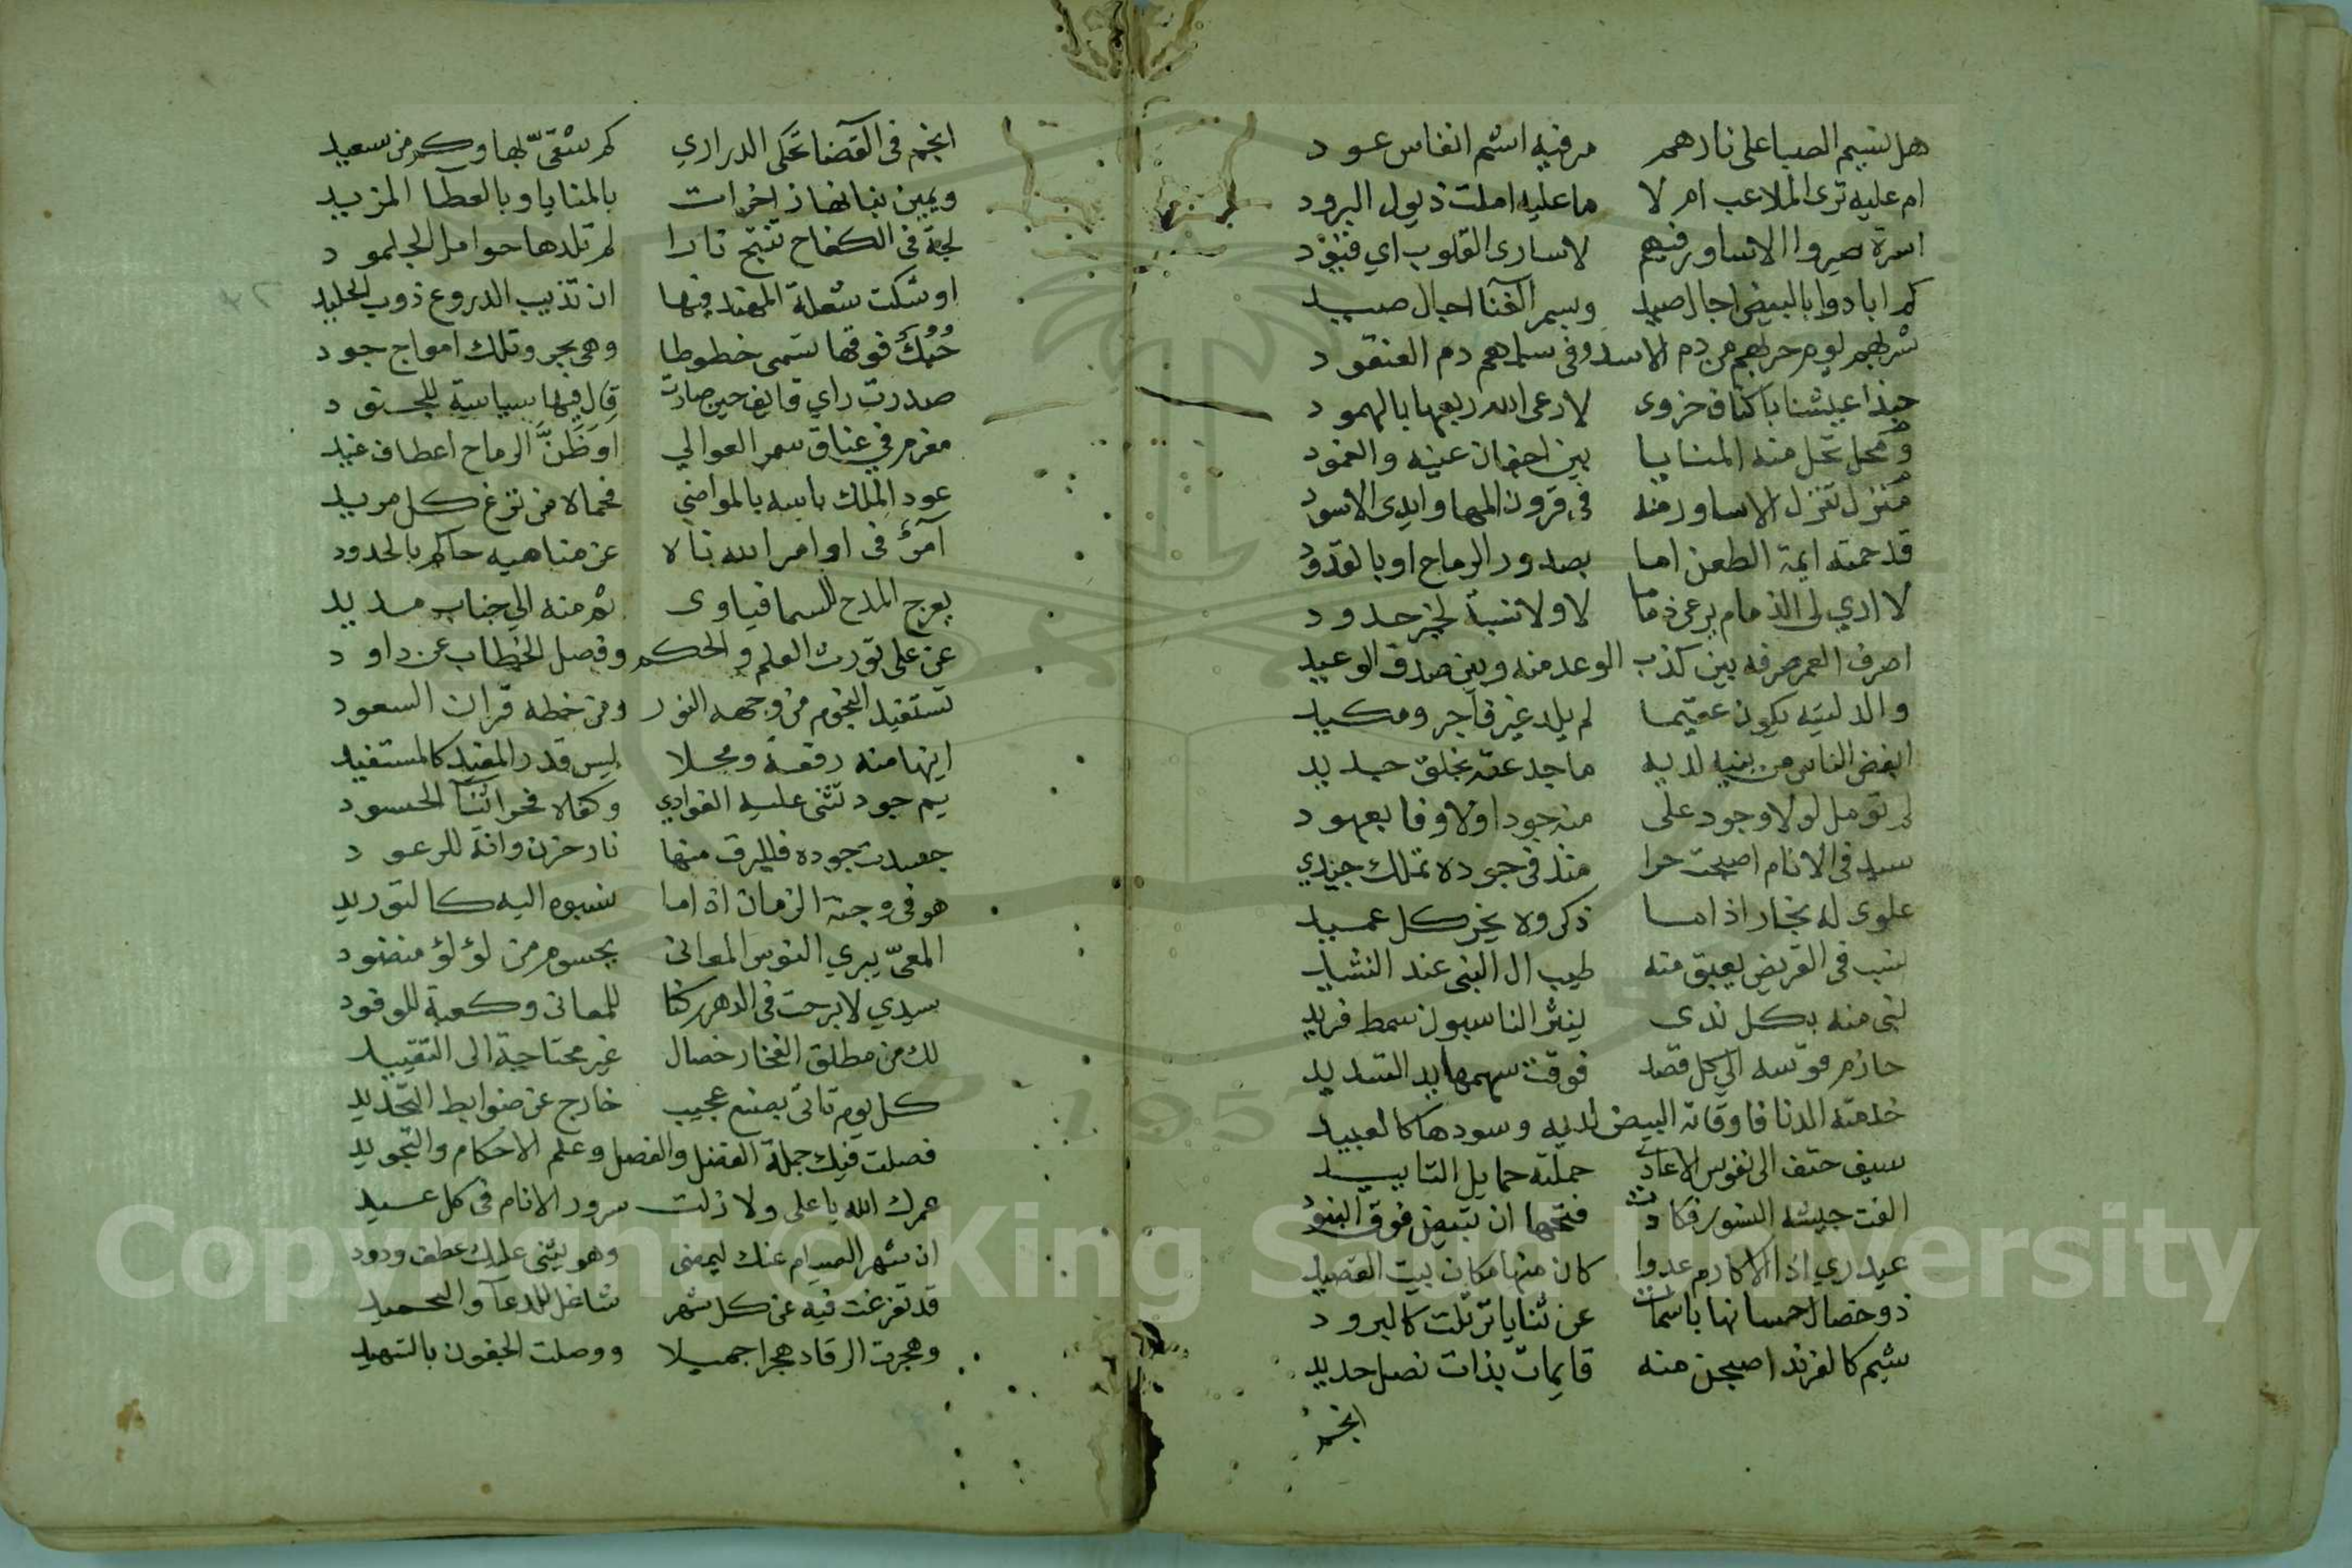 هل نسيم الصبا على نارهم مر فيه اشم انفاس عود
ام عليه ترى الملاعب ام لا ما عليه املت ذيول البرود
اسرة صيروا الاساور فيهم لاسارى القلوب اي قيود
كم ابادوا بالبيض اجال صيد وبسمر القنا اجال صيد
شربهم يوم حربهم من دم الاسد وفى سلمهم دم العنقود
حبذا عيشنا باكناف حزوى لا رعى الله ربعها بالهمود
ومحل تحل منه المنايا بين اجفان عينه والغمود
منزل تنزل الاساور منه فى قرون المها وايدى الاسود
قد حمته ايمة الطعن اما بصدور الرماح او بالقدود
لا ادي لى الذمام يرعى ذماما لا ولا نسبة لخز حدود
اصرف العمر صرفه بين كذب الوعد منه وبين صدق الوعيد
والد ليته يكون عقيما لم يلد غير فاجر ومكيد
ابغض الناس من بنيه لديه ماجد عقه بخلق حديد
لم تومل لولا وجود على منه جودا ولا وفا بعهود
سيد فى الانام اصبحت حرا منذ فى جوده تملك جيدي
علوى له نجار اذا ما ذكروه يخر كل عميد
نسب فى القريض يعبق منه طيب ال النبى عند النشيد
نبى منه بكل ندى ينثر الناسبون سمط فريد
حازم قوسه الى كل قصد فوقت سهمها يد التسديد
خدمته الدنا فاوقاته البيض لديه وسودها كالعبيد
سيف حتف الى نفوس الاعادى حملته حمايل التاييد
الفت جيشه النسور فكادت فتحها ان تبيض فوق البنود
عيدري اذا الاكارم عدوا كان منها مكان بيت القصيد
ذو خصال حسانها باسمات عن ثنايا ترتلت كالبرود
شيم كالفرند اصبحن منه قايمات بذات نصل حديد
انجم
انجم فى القضا تحكى الدراري كم شقى بها وكم من سعيد
ويمين بنانها زاخرات بالمنايا وبالعطا المزيد
لجة فى الكفاح تنتج نارا لم تلدها حوامل الجلمود
اوشكت شعلة المهند فيها ان تذيب الدروع ذوب الجليد
حبك فوقها تسمى خطوطا وهى بحر وتلك امواج جود
صدرت راي قايف حين صارت قال فيها سياسة للجنود
مغرم في عناق سمر العوالي او ظن الرماح اعطاف غيد
عود الملك باسه بالمواضي فحماه من نزغ كل مريد
آمر فى اوامر الله ناه عن مناهيه حاكم بالحدود
يعرج المدح للسما فياوى ثم منه الي جناب مديد
عن على تورث العلم والحكم وفصل الخطاب عن داود
تستفيد النجوم من وجهه النور ومن خطه قران السعود
اينها منه رفعة ومحلا ليس قدر المفيد كالمستفيد
يم جود تثنى عليه الغوادي وكفاه فخرا ثنآ الحسود
حسدت جوده فللبرق منها نار حزن وانة للرعود
هو فى وجنة الزمان اذا ما نسبوه اليه كالتوريد
المعى يبري النوس المعانى بجسوم من لؤلؤ منضود
سيدي لا برحت فى الدهر ركنا للمعانى وكعبة للوفود
لك من مطلق الفخار خصال غير محتاجة الى التقييد
كل يوم تاتى بصنع عجيب خارج عن ضوابط التحديد
فصلت فيك جملة الفضل والفصل وعلم الاحكام والتجويد
عمرك الله يا على ولا زلت سرور الانام فى كل عيد
ان شهر الصيام عنك ليمضى وهو يثنى عليك عطف ودود
قد تفرغت فيه عن كل شهر شاغل للدعآ والتحميد
وهجرت الرقاد هجرا جميلا ووصلت الجفون بالتسهيد
Copyright © King Saud University
1957